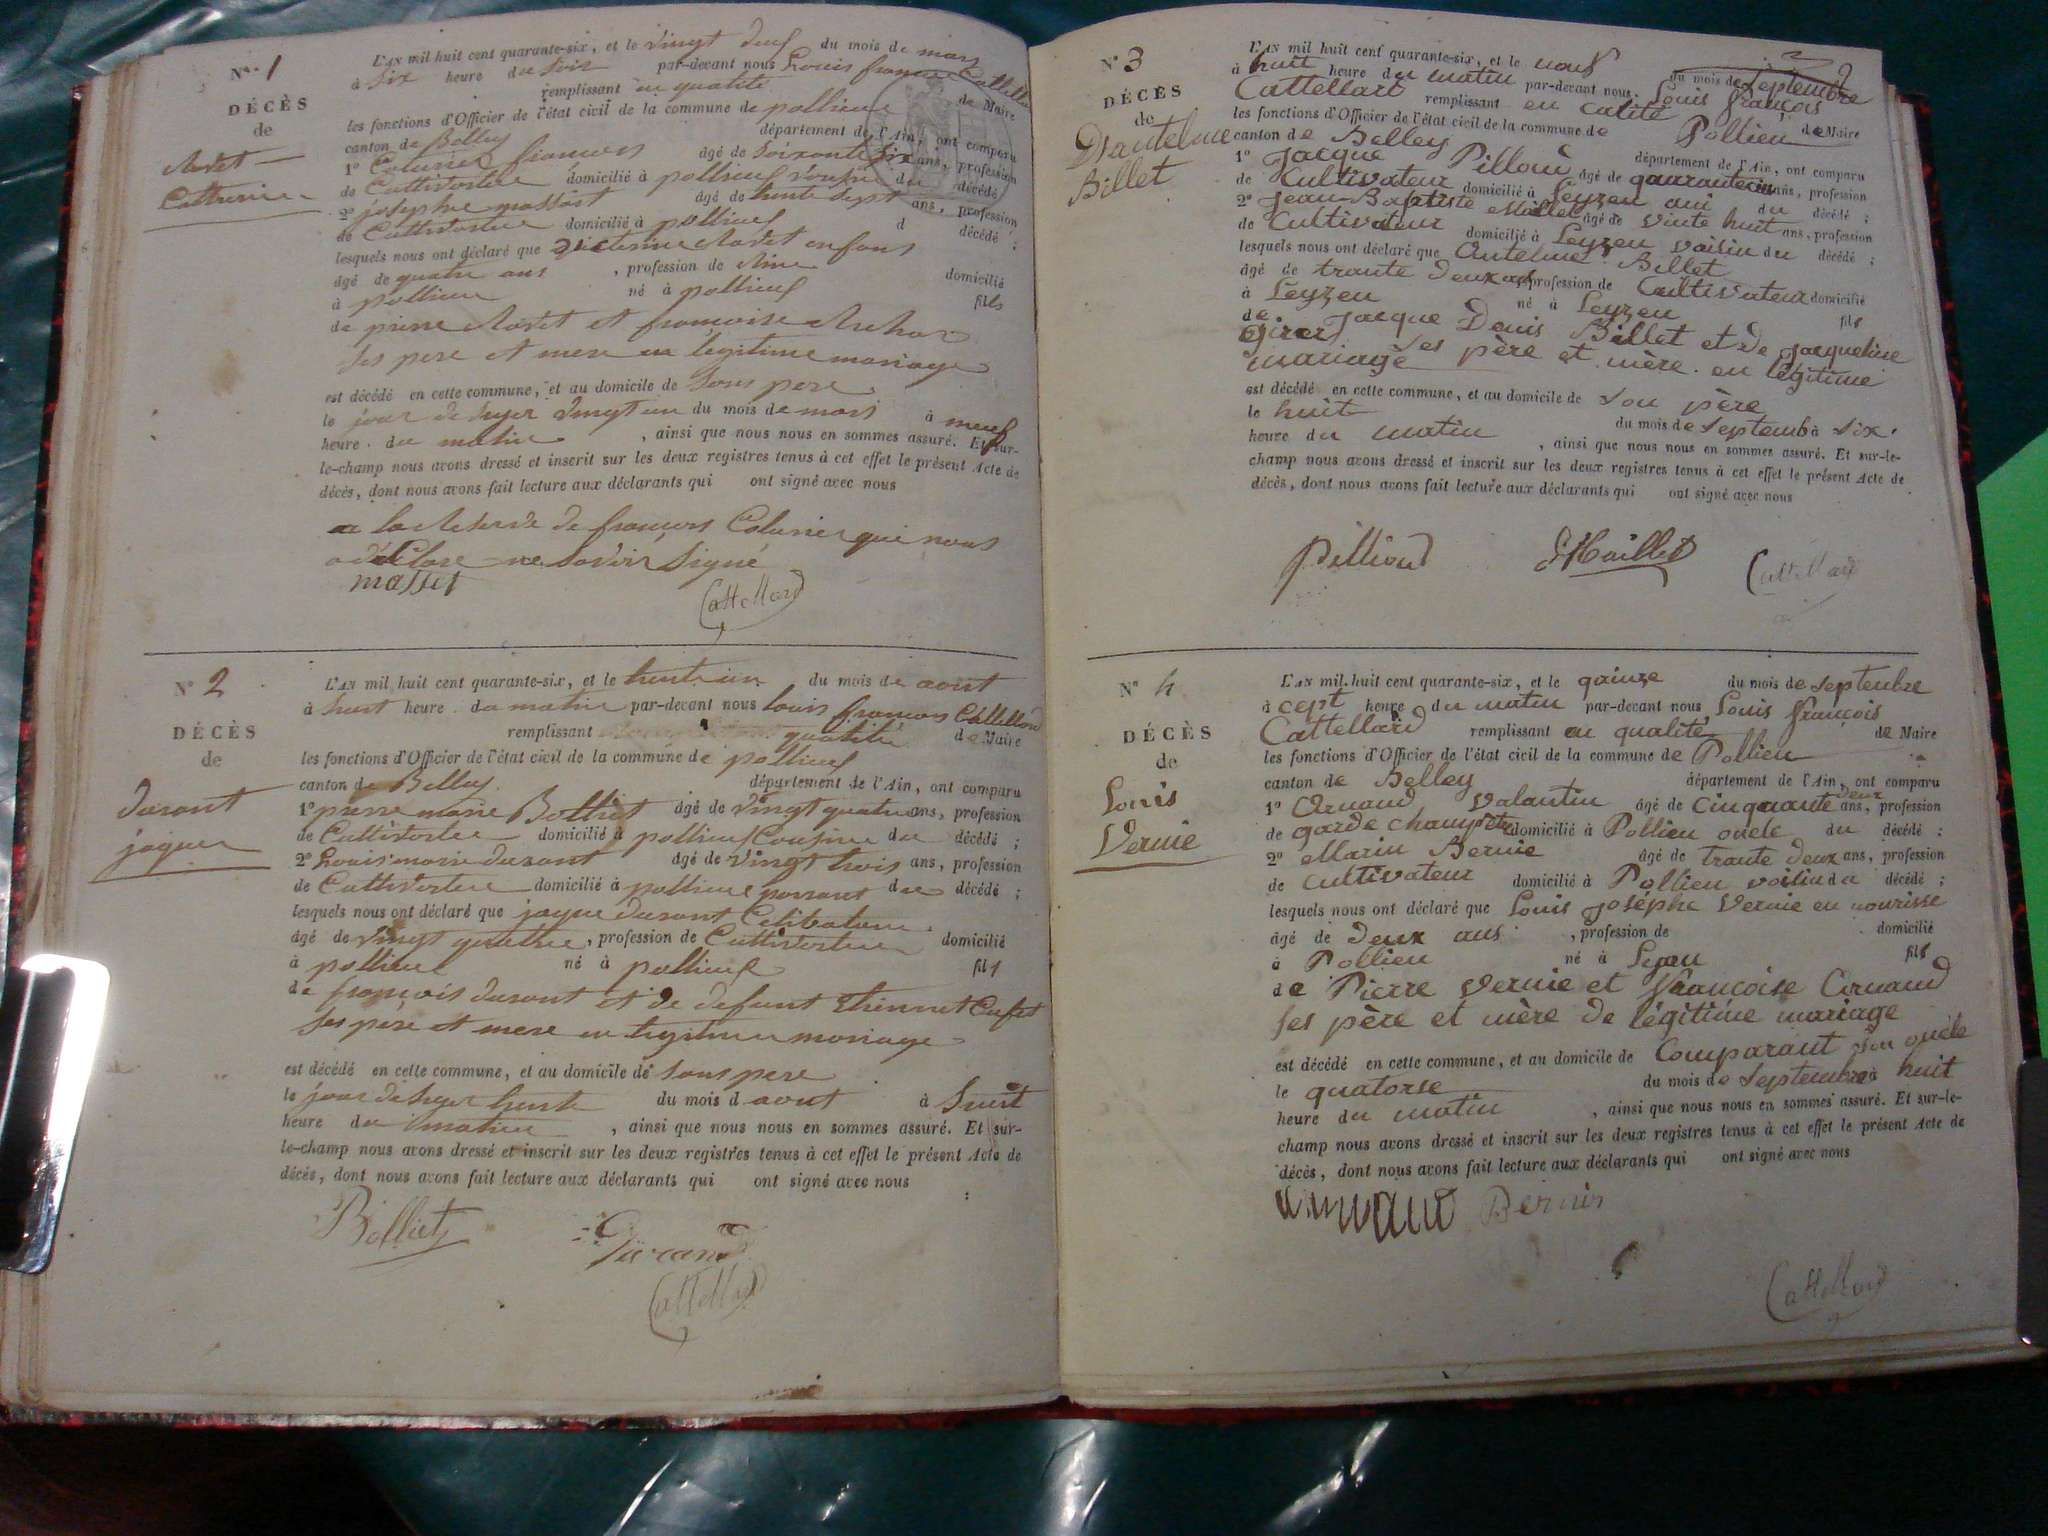 N° 1
DÉCÈS
de
Catherine
L'AN mil huit cent quarante-six, et le vingt deux du mois de mars
à six heure du soir par-devant nous Louis françois Cattellard
remplissant en qualité de Maire
les fonctions d'Officier de l'état civil de la commune de pollieux
canton de Belley département de l'Ain, ont comparu
1° françois âgé de soixante six ans, profession
de Cultivateur domicilié à pollieux du décédé
2° josephe massot âgé de trente sept ans, profession
de Cultivateur domicilié à pollieux d décédé ;
lesquels nous ont déclaré que enfans
âgé de quatre ans , profession de domicilié
à pollieux né à pollieux fils
de pierre et françoise
ses pere et mere en legitime mariage
est décédé en cette commune, et au domicile de sons pere
le jour de hyer vingt un du mois de mars à neuf
heure du matin , ainsi que nous nous en sommes assuré. Et sur-
le-champ nous avons dressé et inscrit sur les deux registres tenus à cet effet le présent Acte de
décès, dont nous avons fait lecture aux déclarants qui ont signé avec nous
a la de françois qui nous
a déclare ne savoir signé
masset Cattellard
N° 2
DÉCÈS
de
durant
jaques
L'AN mil huit cent quarante-six, et le trente un du mois de aout
à huit heure du matin par-devant nous louis françois Cattellard
remplissant qualité de Maire
les fonctions d'Officier de l'état civil de la commune de pollieux
canton de Belley département de l'Ain, ont comparu
1° pierre marie Bolliet âgé de vingt quatre ans, profession
de Cultivateur domicilié à pollieux Cousin du décédé ;
2° Louis marie durant âgé de vingt trois ans, profession
de Cultivateur domicilié à pollieux parrant du décédé ;
lesquels nous ont déclaré que jaque durant Celibataire
âgé de vingt quatre , profession de Cultivateur domicilié
à pollieux né à pollieux fils
de françois durant et de defunt
ses père et mere en legitime mariage
est décédé en cette commune, et au domicile de sons pere
le jour de hyer trente du mois d aout à huit
heure du matin , ainsi que nous nous en sommes assuré. Et sur-
le-champ nous avons dressé et inscrit sur les deux registres tenus à cet effet le présent Acte de
décès, dont nous avons fait lecture aux déclarants qui ont signé avec nous
Bolliet Durand
Cattellard
2
N° 3
DÉCÈS
de
D'antelme
Billet
L'AN mil huit cent quarante-six, et le neuf du mois de Septembre
à huit heure du matin par-devant nous Louis François
Cattellard remplissant en calité de Maire
les fonctions d'Officier de l'état civil de la commune de Pollieu
canton de Belley département de l'Ain, ont comparu
1° Jacque Pilloud âgé de ans, profession
de Cultivateur domicilié à Leyzeu ami du décédé ;
2° Jean-Baptiste Maillet âgé de vinte huit ans, profession
de Cultivateur domicilié à Leyzeu voisin du décédé ;
lesquels nous ont déclaré que Antelme Billet
âgé de trante deux ans profession de Cultivateur domicilié
à Leyzeu né à Leyzeu fils
de Jacque Denis Billet et de Jacqueline
Girer ses père et mère en légitime
mariage
est décédé en cette commune, et au domicile de son père
le huit du mois de Septemb à six
heure du matin , ainsi que nous nous en sommes assuré. Et sur-le-
champ nous avons dressé et inscrit sur les deux registres tenus à cet effet le présent Acte de
décès, dont nous avons fait lecture aux déclarants qui ont signé avec nous
Pillioud Maillet Cattellard
N° 4
DÉCÈS
de
Louis
Vernie
L'AN mil huit cent quarante-six, et le quinze du mois de Septembre
à cept heure du matin par-devant nous Louis François
Cattellard remplissant en qualité de Maire
les fonctions d'Officier de l'état civil de la commune de Pollieu
canton de Belley département de l'Ain, ont comparu
1° Arnaud Valantin âgé de cinquante deux ans, profession
de garde champêtre domicilié à Pollieu oncle du décédé ;
2° Marin Bernie âgé de trante deux ans, profession
de cultivateur domicilié à Pollieu voisin du décédé ;
lesquels nous ont déclaré que Louis Joséphe Vernie en nourisse
âgé de deux ans , profession de domicilié
à Pollieu né à Lyon fils
de Pierre Vernie et Françoise Arnaud
ses père et mère de légitime mariage
est décédé en cette commune, et au domicile de Comparant son oncle
le quatorse du mois de Septembre à huit
heure du matin , ainsi que nous nous en sommes assuré. Et sur-le-
champ nous avons dressé et inscrit sur les deux registres tenus à cet effet le présent Acte de
décès, dont nous avons fait lecture aux déclarants qui ont signé avec nous
Arnaud Bernis
Cattellard